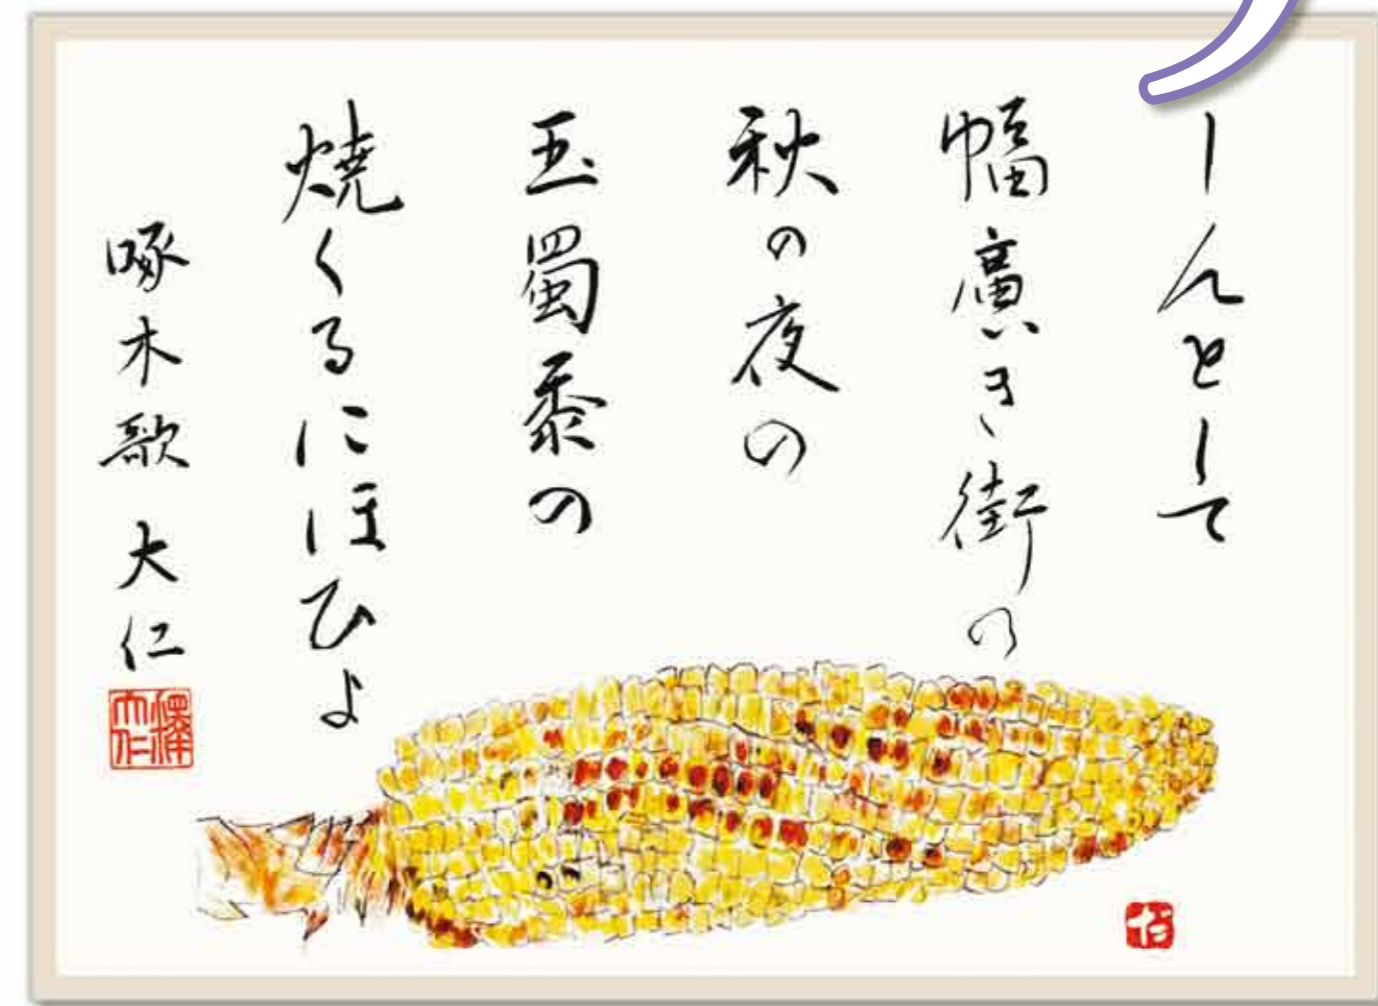 しんとして
幅廣き街の
秋の夜の
玉蜀黍の
焼くるにほひよ
啄木歌 大仁